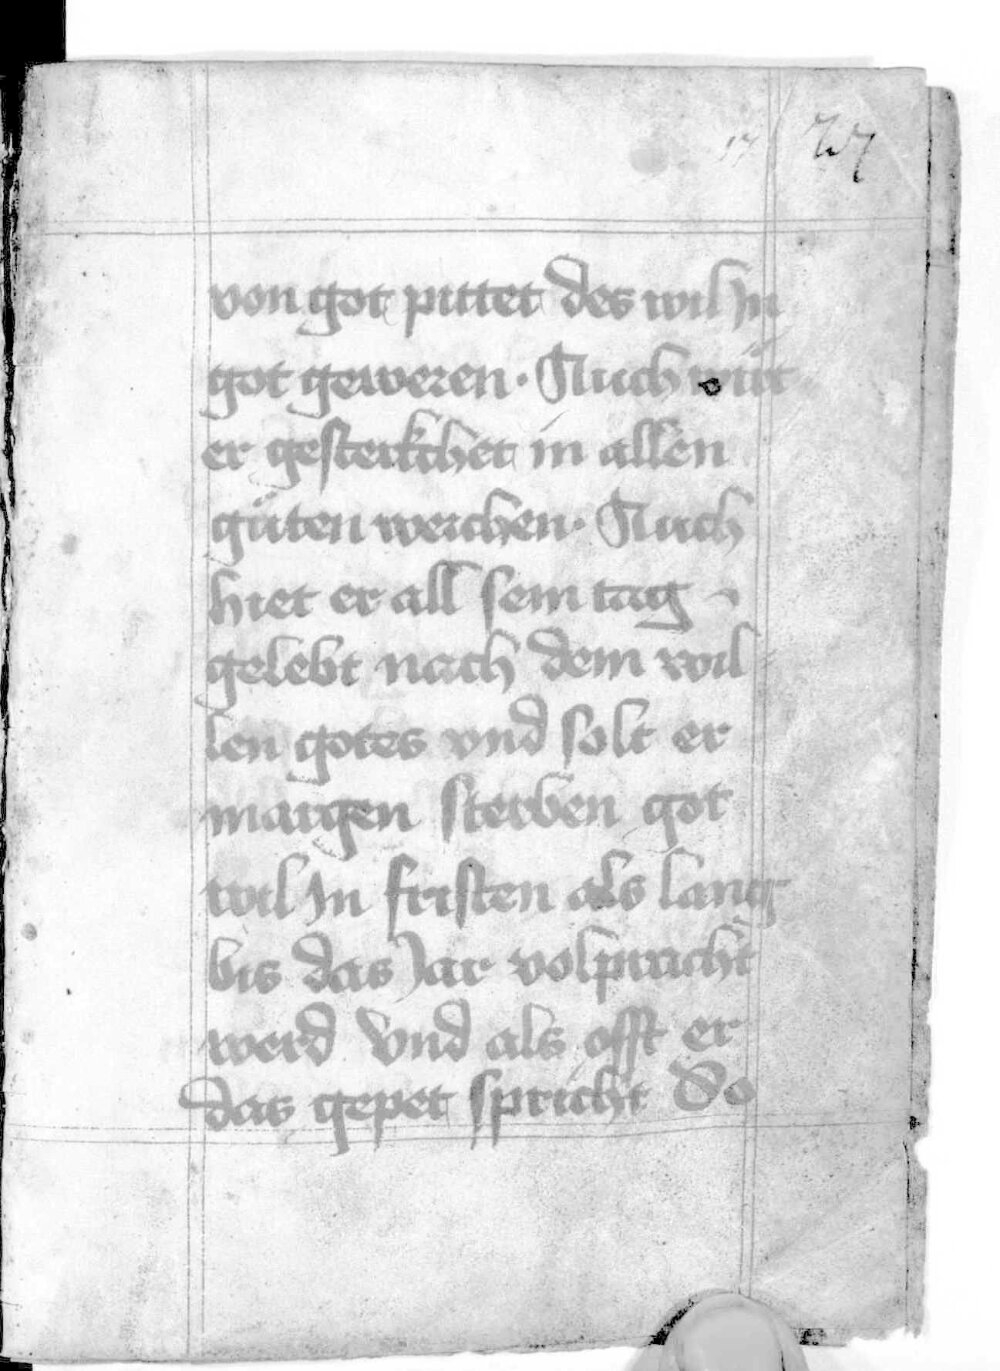 17
von got pittet des wil Jn
got geweren · Auch wirt
er gesterkchet in allen
güten werchen · Auch
hiet er all sein tag
gelebt nach dem wil
len gotes vnd solt er
margen sterben got
wil Jn fristen als lang
bis das Jar volpracht
werd Vnd als offt er
das gepet spricht So